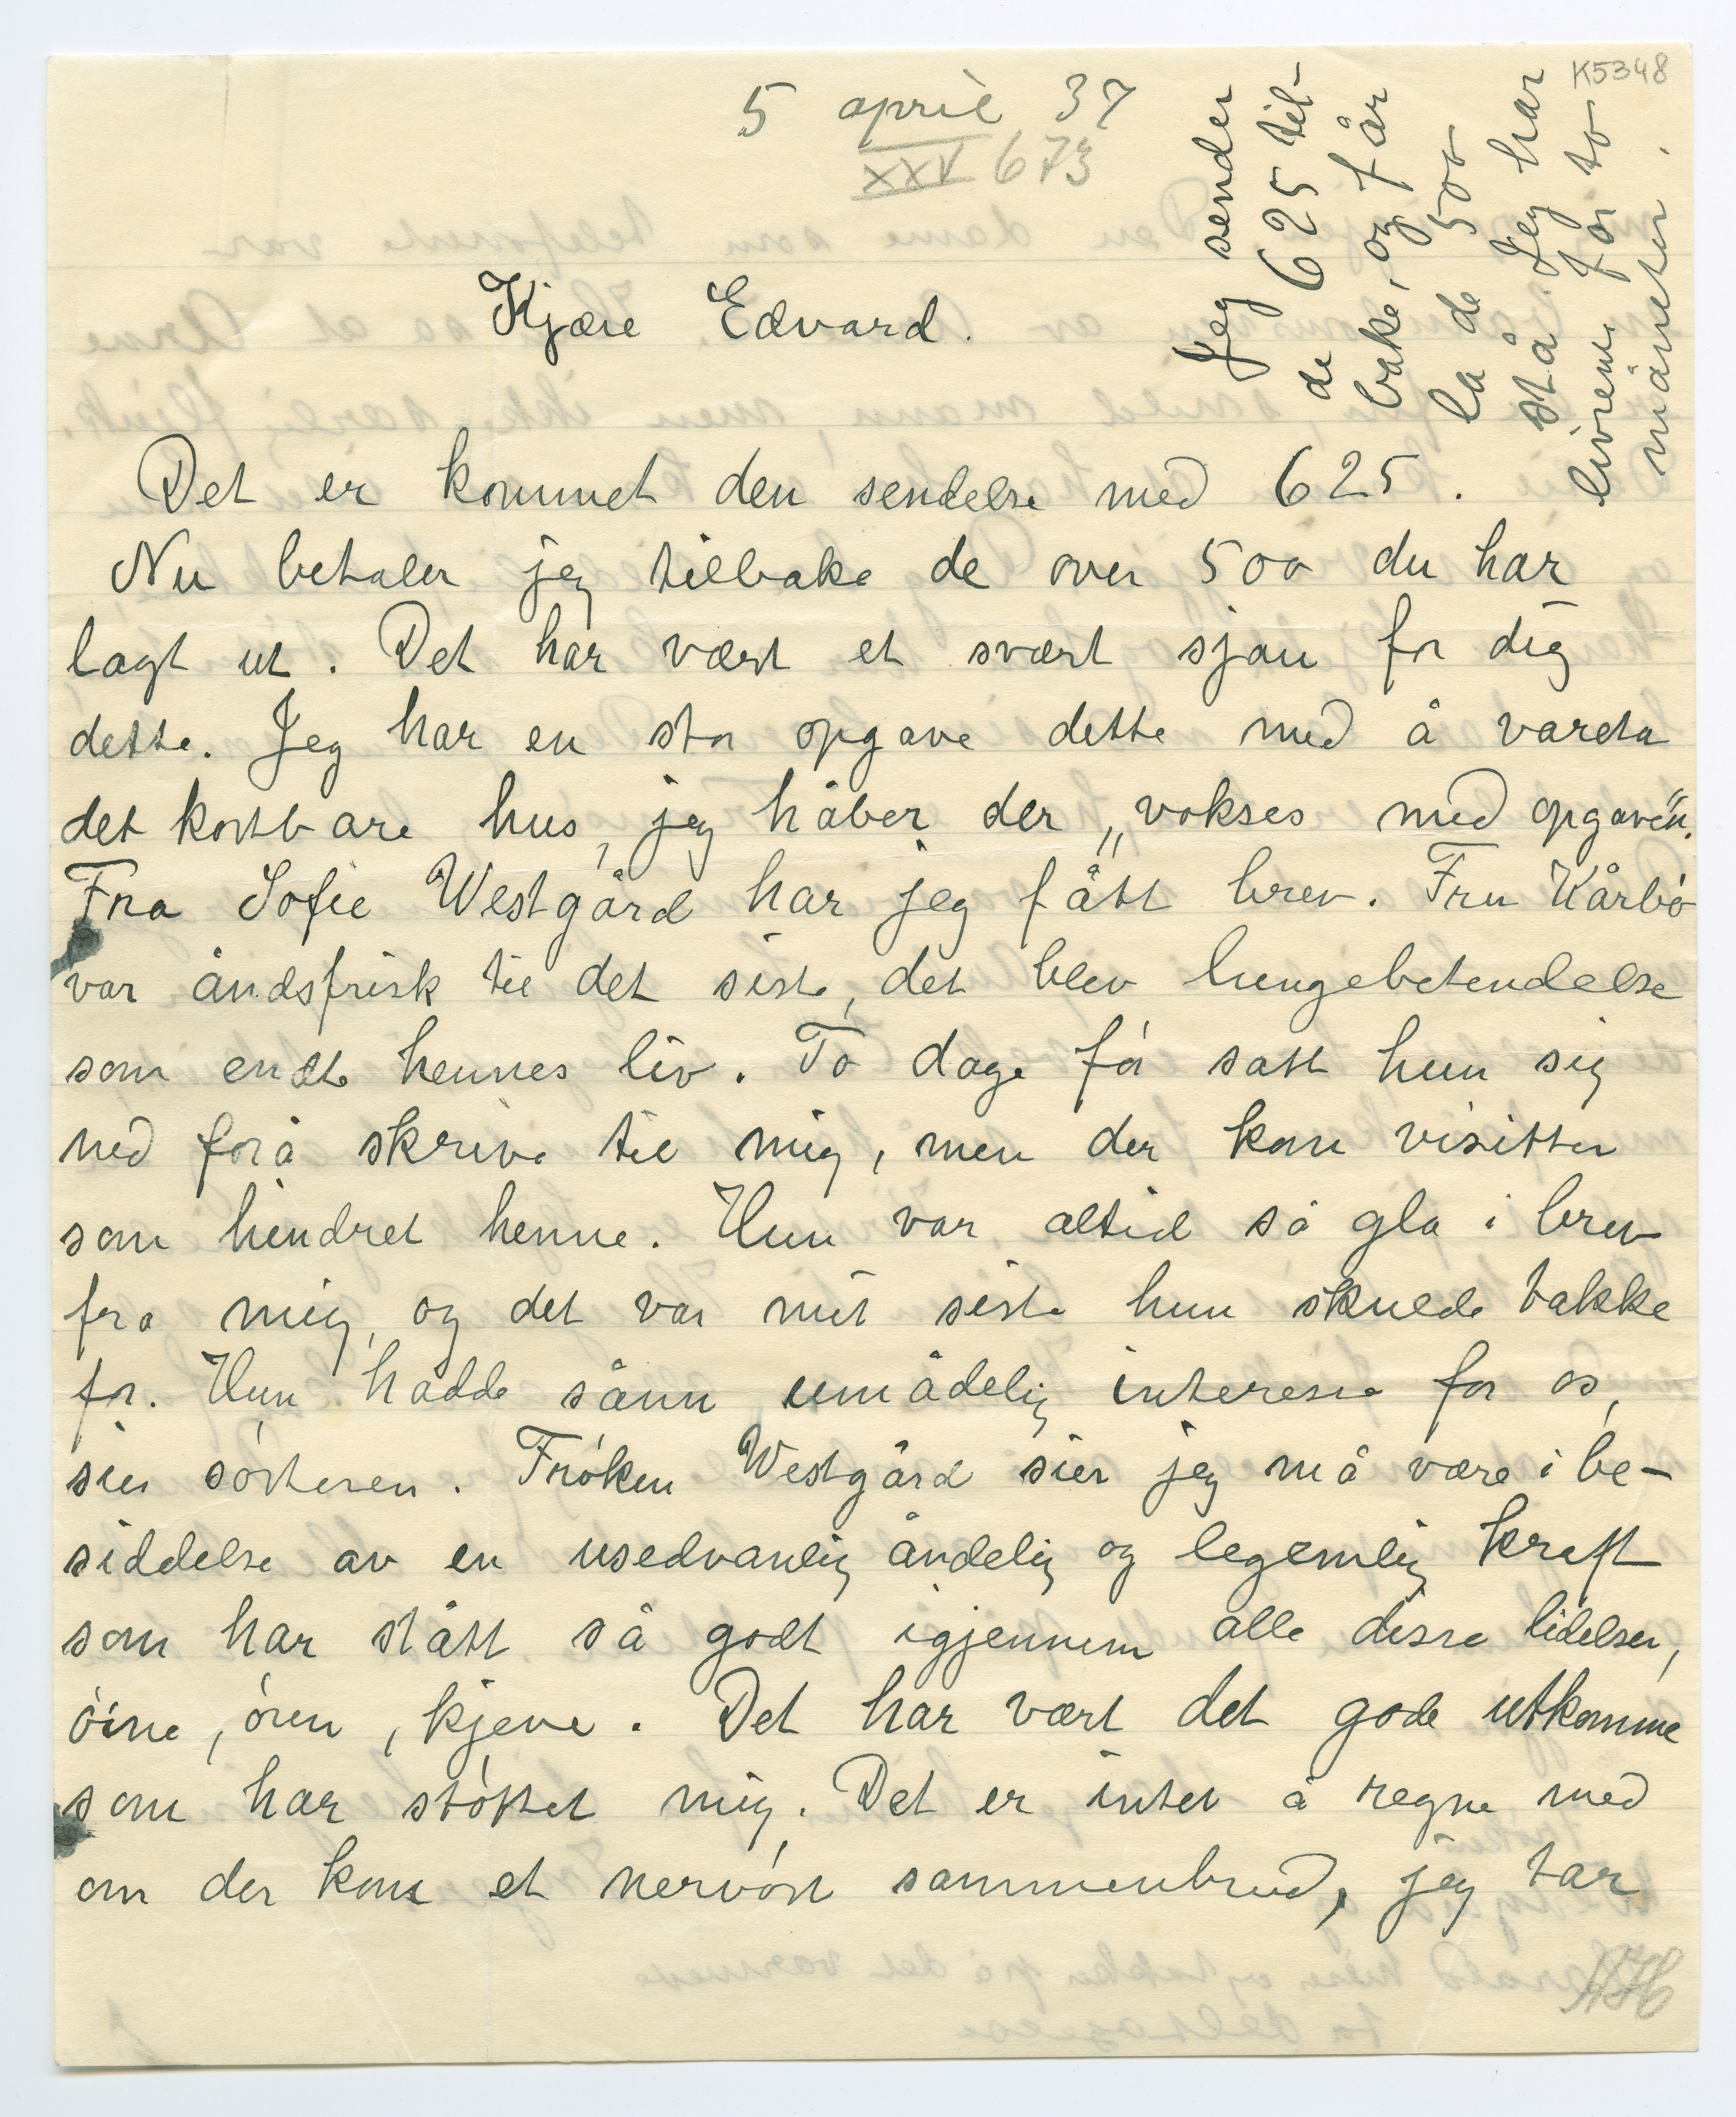 K5348
5 april 37
XXV 673
Jeg sender
de 625 til-
bake, og får
la de 500
stå Jeg har
livrente for to
måneter.
Kjære Edvard.
Det er kommet den sendelse med 625.
Nu betaler jeg tilbake de over 500 du har
lagt ut. Det har vært et svært sjau for dig
dette. Jeg har en stor opgave dette med å vareta
det kostbare hus, jeg håber der „vokses med opgaven".
Fra Sofie Westgård har jeg fått brev. Fru Kårbø
var åndsfrisk til det siste, det blev lungebetendelse
som endte hennes liv. To dage før satt hun sig
ned forå skrive til mig, men der kom visitter
som hindret henne. Hun var altid så gla i brev
fra mig, og det var mit siste hun skulde takke
for. Hun hadde sånn umådelig interesse for os,
sier søsteren. Frøken Westgård sier jeg må være i be-
siddelse av en usedvanlig åndelig og legemlig kraft
som har stått så godt igjennem alle disse lidelser,
øine, øren, kjeve. Det har vært det gode utkomme
som har støttet mig. Det er intet å regne med
om der kom et nervøst sammenbrud, jeg tar